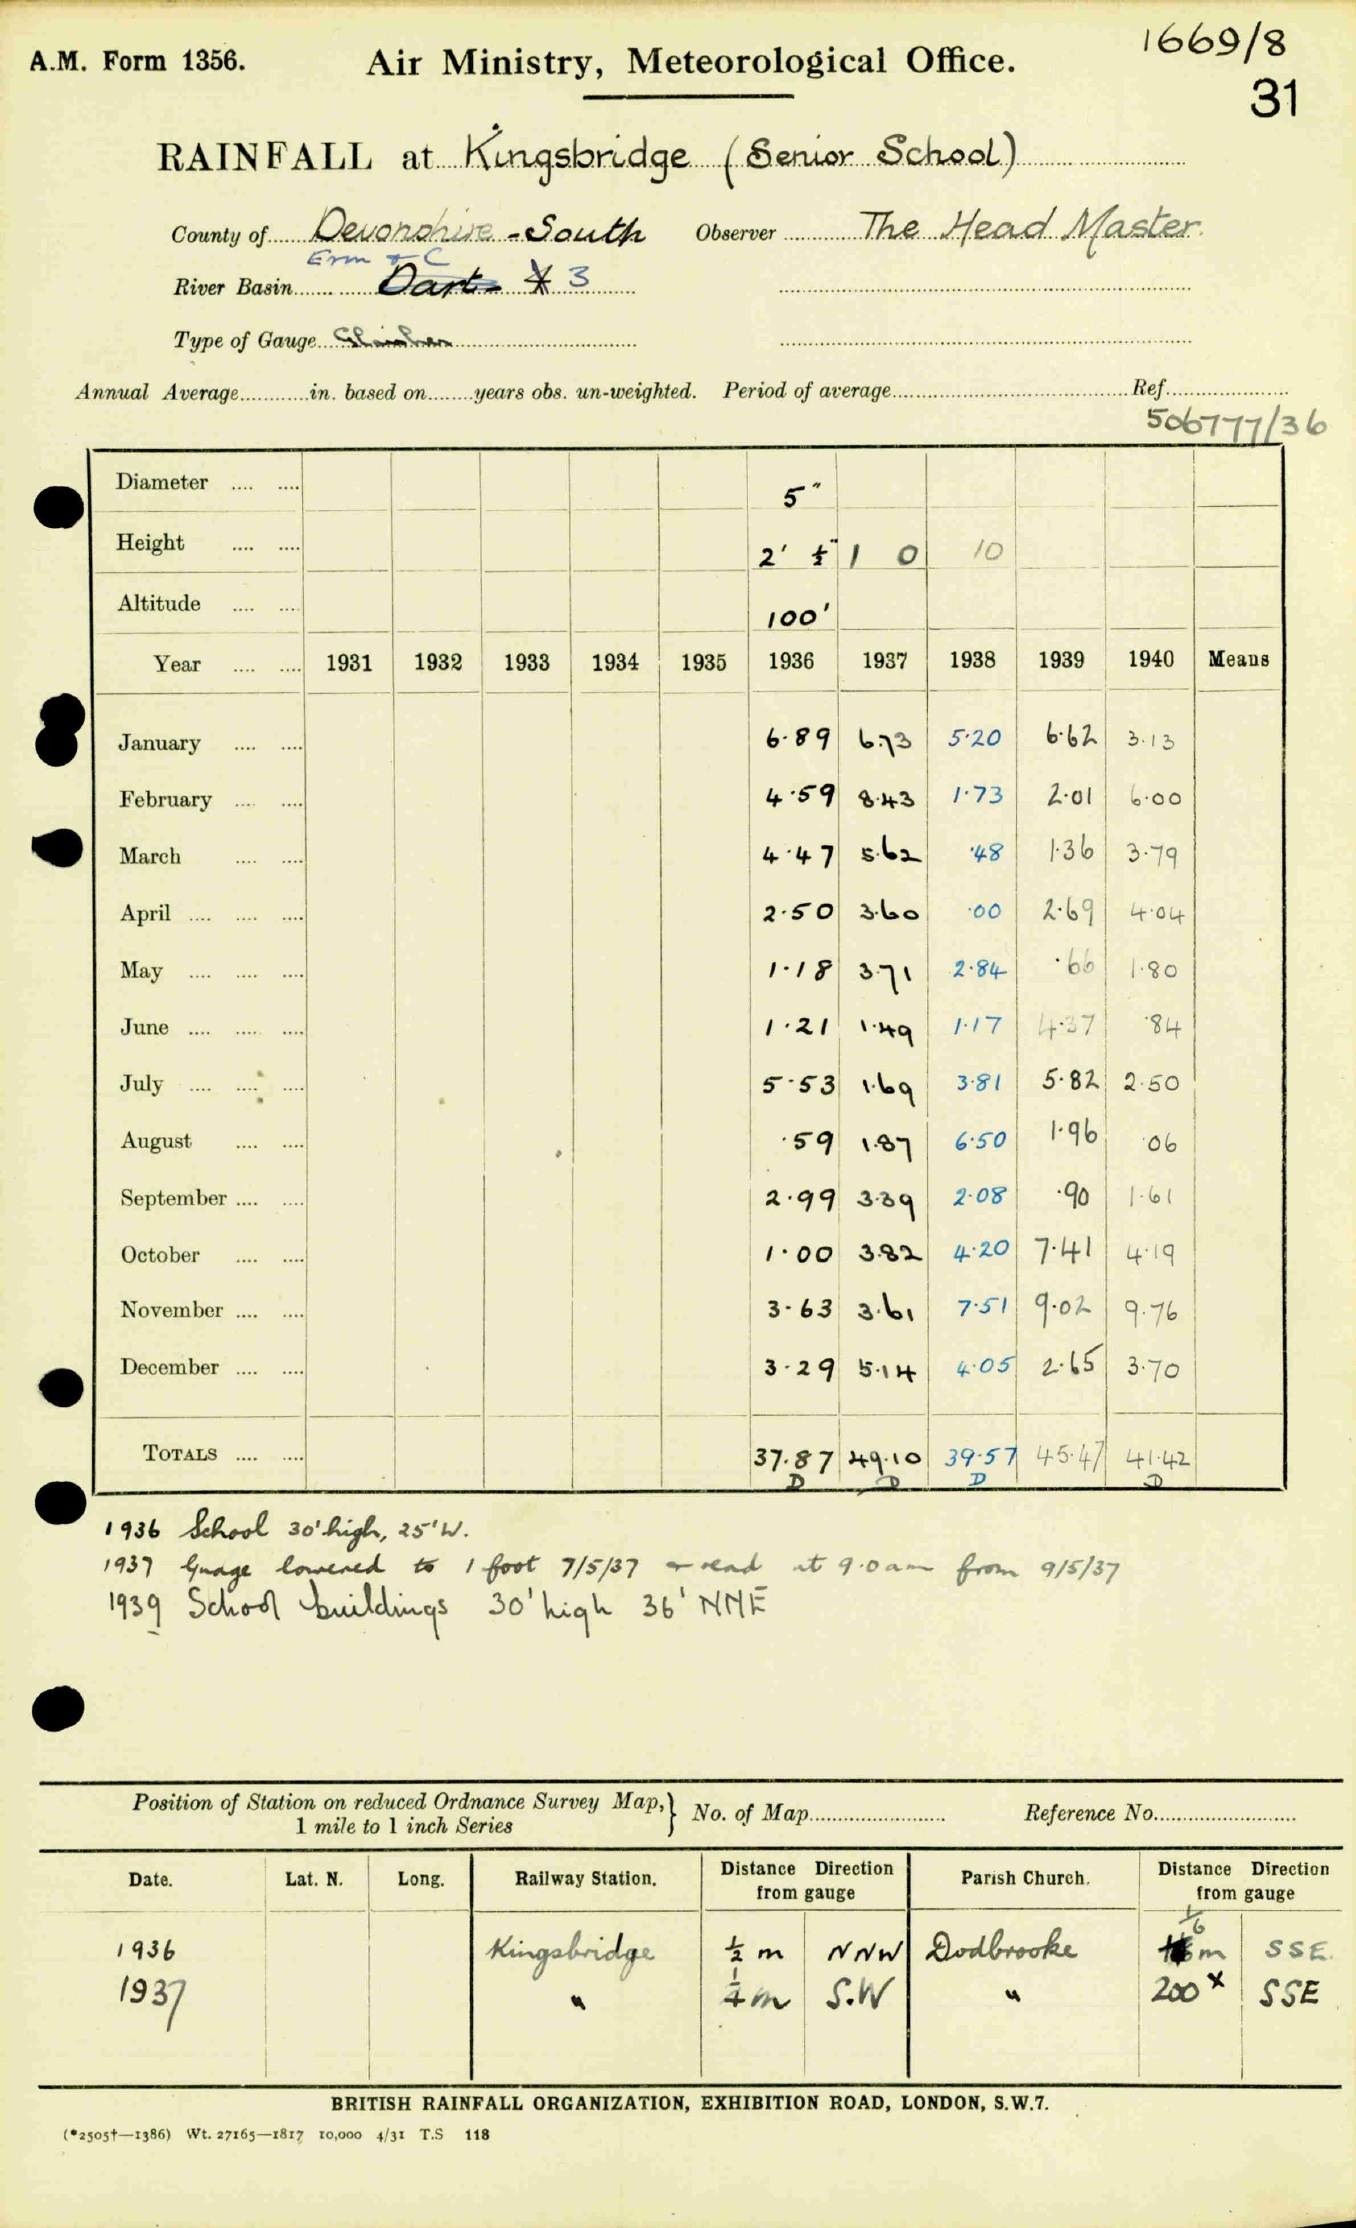 1669/8
A.M. Form 1356. Air Ministry, Meteorological Office.
31
RAINFALL at Kingsbridge (Senior School)
County of Devonshire - South Observer The Head Master.
Erm + C
River Basin Dart 3
Type of Gauge
Annual Average in. based on years obs. un-weighted. Period of average Ref.
506777/36
Diameter 5"
Height 2' ½" 1 0 10
Altitude 100'
Year 1931 1932 1933 1934 1935 1936 1937 1938 1939 1940 Means
January 6·89 6·73 5·20 6·62 3·13
February 4·59 8·43 1·73 2·01 6·00
March 4·47 5·62 ·48 1·36 3·79
April 2·50 3·60 ·00 2·69 4·04
May 1·18 3·71 2·84 ·66 1·80
June 1·21 1·49 1·17 4·37 ·84
July 5·53 1·69 3·81 5·82 2·50
August ·59 1·87 6·50 1·96 ·06
September 2·99 3·39 2·08 ·90 1·61
October 1·00 3·82 4·20 7·41 4·19
November 3·63 3·61 7·51 9·02 9·76
December 3·29 5·14 4·05 2·65 3·70
TOTALS 37·87 49·10 39·57 45·47 41·42
D D D D
1936 School 30' high, 25' W.
1937 Guage lowered to 1 foot 7/5/37 & read at 9.0 am from 9/5/37
1939 School buildings 30' high 36' NNE
Position of Station on reduced Ordnance Survey Map, } No. of Map Reference No.
1 mile to 1 inch Series
Date. Lat. N. Long. Railway Station. Distance Direction from gauge Parish Church. Distance Direction from gauge
1936 Kingsbridge ½ m NNW Dodbrooke 1/6 m SSE.
1937 " ¼ m S.W " 200 x SSE
BRITISH RAINFALL ORGANIZATION, EXHIBITION ROAD, LONDON, S.W.7.
(*2505†—1386) Wt. 27165—1817 10,000 4/31 T.S 118